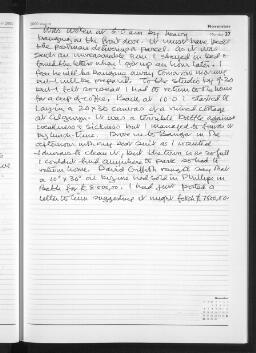 November
27
Was woken at 8.0 am by heavy
banging at the front door. It must have been
the postman delivering a parcel. As it was
such an unreasonable hour I stayed in bed &
found the letter when I got up an hour later.
he will be banging away tomorrow morning
but I will be prepared. To the studio by 9.30
but I felt so weak I had to return to the house
for a cup of coffee. Back at 10.0 I started
laying a 20x30 canvas of a ruined cottage
at . It was a terrible battle against
weakness & sickness but I managed to finish it
by lunch time. Drove in to Bangor in the
afternoon with my best suit as I wanted
to clean it, but the town was so full
I couldn't find anywhere to park so had to
return home. David Griffith rang to say that
a 10"x 30" on had sold in Phillips in
for £ 8,500,00. I had just posted a
letter to him suggesting it might fetch £7500,00.
November